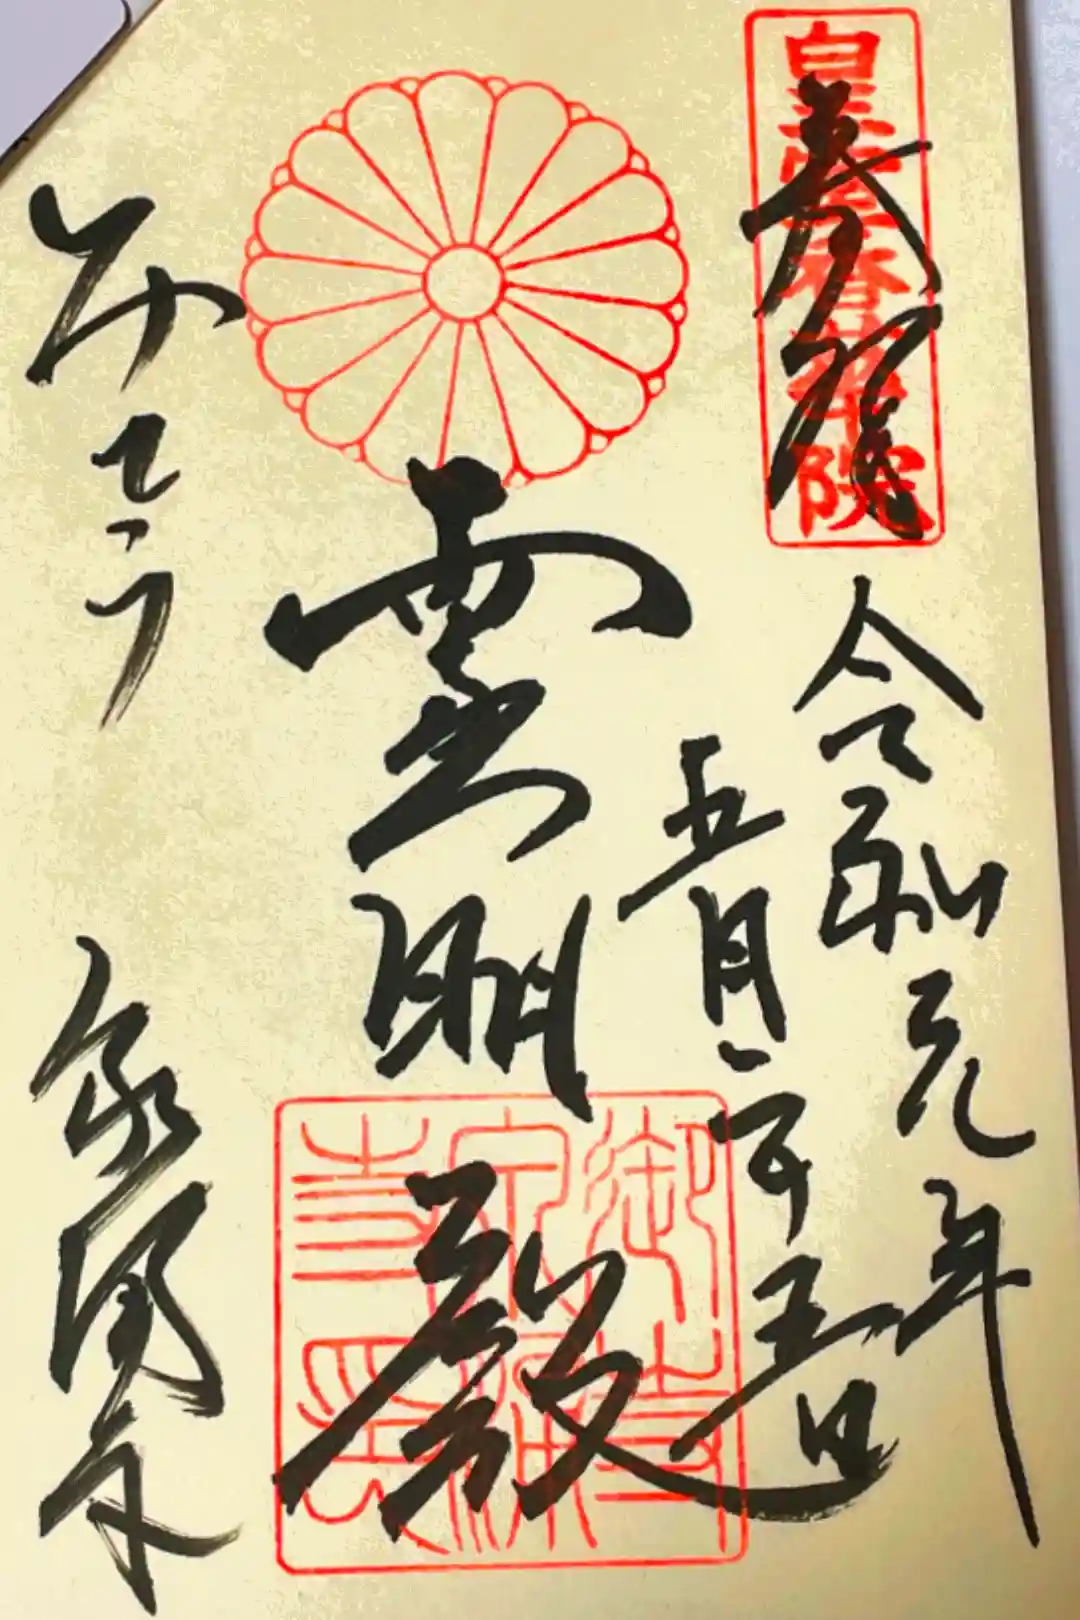 皇室香華院
奉拝
令和元年
五月二十五日
霊明殿
御寺泉涌寺印
みてら
泉涌寺